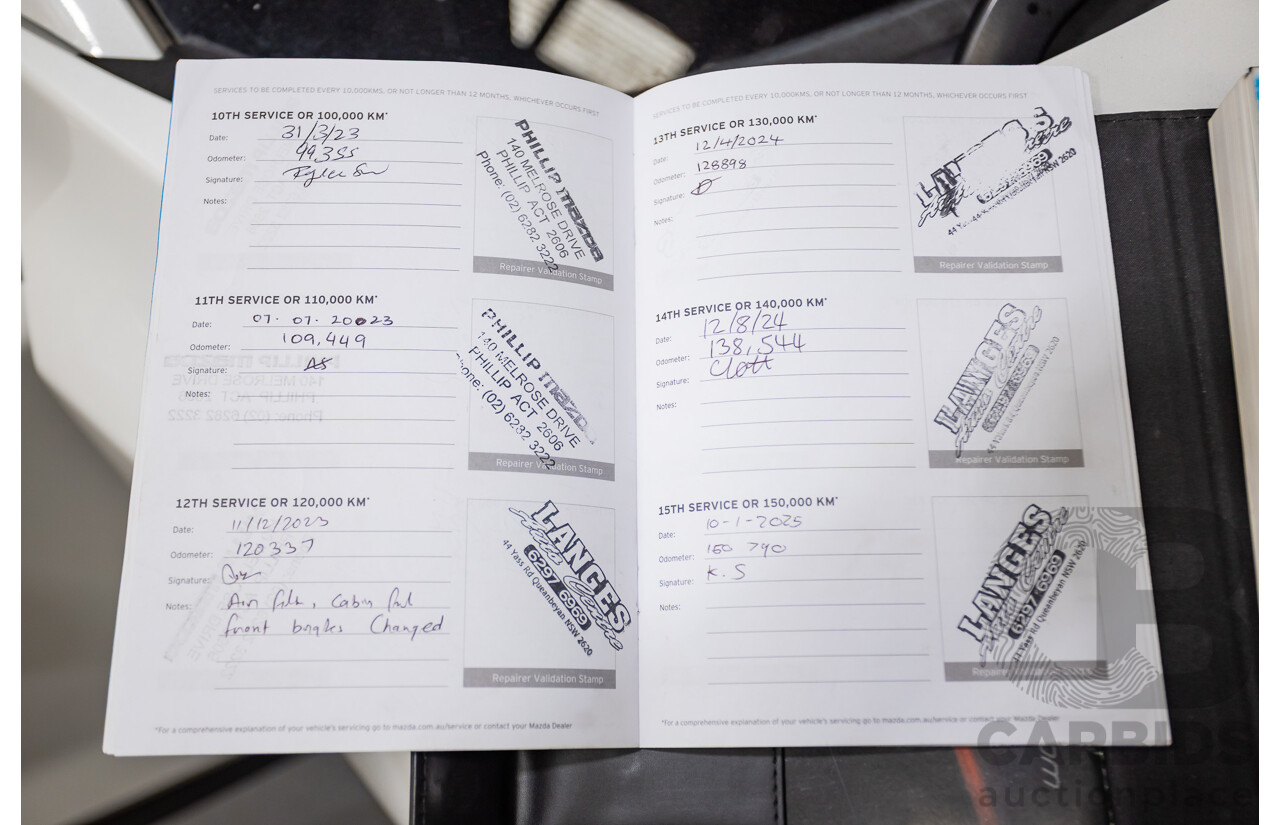 SERVICES TO BE COMPLETED EVERY 10,000KMS, OR NOT LONGER THAN 12 MONTHS, WHICHEVER OCCURS FIRST
10TH SERVICE OR 100,000 KM*
Date: 31/3/23
Odometer: 99,355
Signature:
Notes:
PHILLIP mazda
140 MELROSE DRIVE
PHILLIP ACT 2606
Phone: (02) 6282 3222
Repairer Validation Stamp
11TH SERVICE OR 110,000 KM*
Date: 07. 07. 2023
Odometer: 109,449
Signature: AS
Notes:
PHILLIP mazda
140 MELROSE DRIVE
PHILLIP ACT 2606
Phone: (02) 6282 3222
Repairer Validation Stamp
12TH SERVICE OR 120,000 KM*
Date: 11/12/2023
Odometer: 120337
Signature:
Notes: Cabin
front Changed
LANGES
6297 6969
44 Yass Rd Queanbeyan NSW 2620
Repairer Validation Stamp
*For a comprehensive explanation of your vehicle's servicing go to mazda.com.au/service or contact your Mazda Dealer
SERVICES TO BE COMPLETED EVERY 10,000KMS, OR NOT LONGER THAN 12 MONTHS, WHICHEVER OCCURS FIRST
13TH SERVICE OR 130,000 KM*
Date: 12/4/2024
Odometer: 128898
Signature:
Notes:
NSW 2620
Repairer Validation Stamp
14TH SERVICE OR 140,000 KM*
Date: 12/8/24
Odometer: 138,544
Signature:
Notes:
LANGES
Repairer Validation Stamp
15TH SERVICE OR 150,000 KM*
Date: 10-1-2025
Odometer: 150 790
Signature: K. S
Notes:
LANGES
6297 6969
44 Yass Rd Queanbeyan NSW 2620
*For a comprehensive explanation of your vehicle's servicing go to mazda.com.au/service or contact your Mazda Dealer
CARBIDS
auctionplace